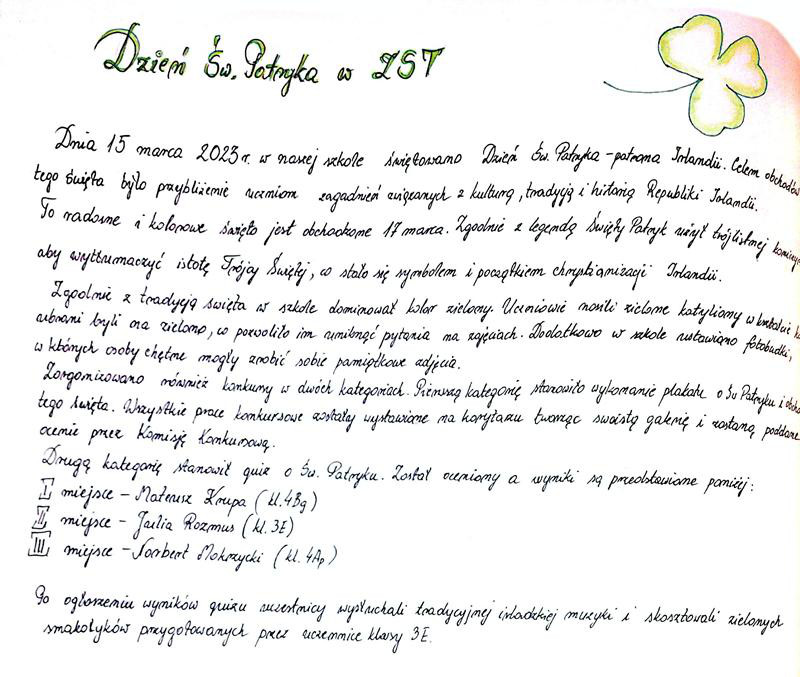 Dzień Św. Patryka w ZST
Dnia 15 marca 2023 r. w naszej szkole świętowano Dzień Św. Patryka - patrona Irlandii. Celem obchodów
tego święta było przybliżenie uczniom zagadnień związanych z kulturą, tradycją i historią Republiki Irlandii.
To radosne i kolorowe święto jest obchodzone 17 marca. Zgodnie z legendą Święty Patryk użył trójlistnej
aby wytłumaczyć istotę Trójcy Świętej, co stało się symbolem i początkiem chrystianizacji Irlandii.
Zgodnie z tradycją święta w szkole dominował kolor zielony. Uczniowie nosili zielone kotyliony w kształcie
ubrani byli na zielono, co pozwoliło im uniknąć pytania na zajęciach. Dodatkowo w szkole ustawiono fotobudki,
w których osoby chętne mogły zrobić sobie pamiątkowe zdjęcia.
Zorganizowano również konkursy w dwóch kategoriach. Pierwszą kategorię stanowiło wykonanie plakatu o Św Patryku i
tego święta. Wszystkie prace konkursowe zostały wystawione na korytarzu tworząc swoistą galerię i zostaną poddane
ocenie przez Komisję Konkursową.
Drugą kategorię stanowił quiz o Św. Patryku. Został oceniony a wyniki są przedstawione poniżej:
I miejsce - Mateusz Krupa (kl. 4Bg)
II miejsce - Julia Rozmus (kl. 3E)
III miejsce - Norbert Mokrzycki (kl. 4Ap)
Po ogłoszeniu wyników quizu uczestnicy wysłuchali tradycyjnej irladzkiej muzyki i skosztowali zielonych
smakołyków przygotowanych przez uczennice klasy 3E.